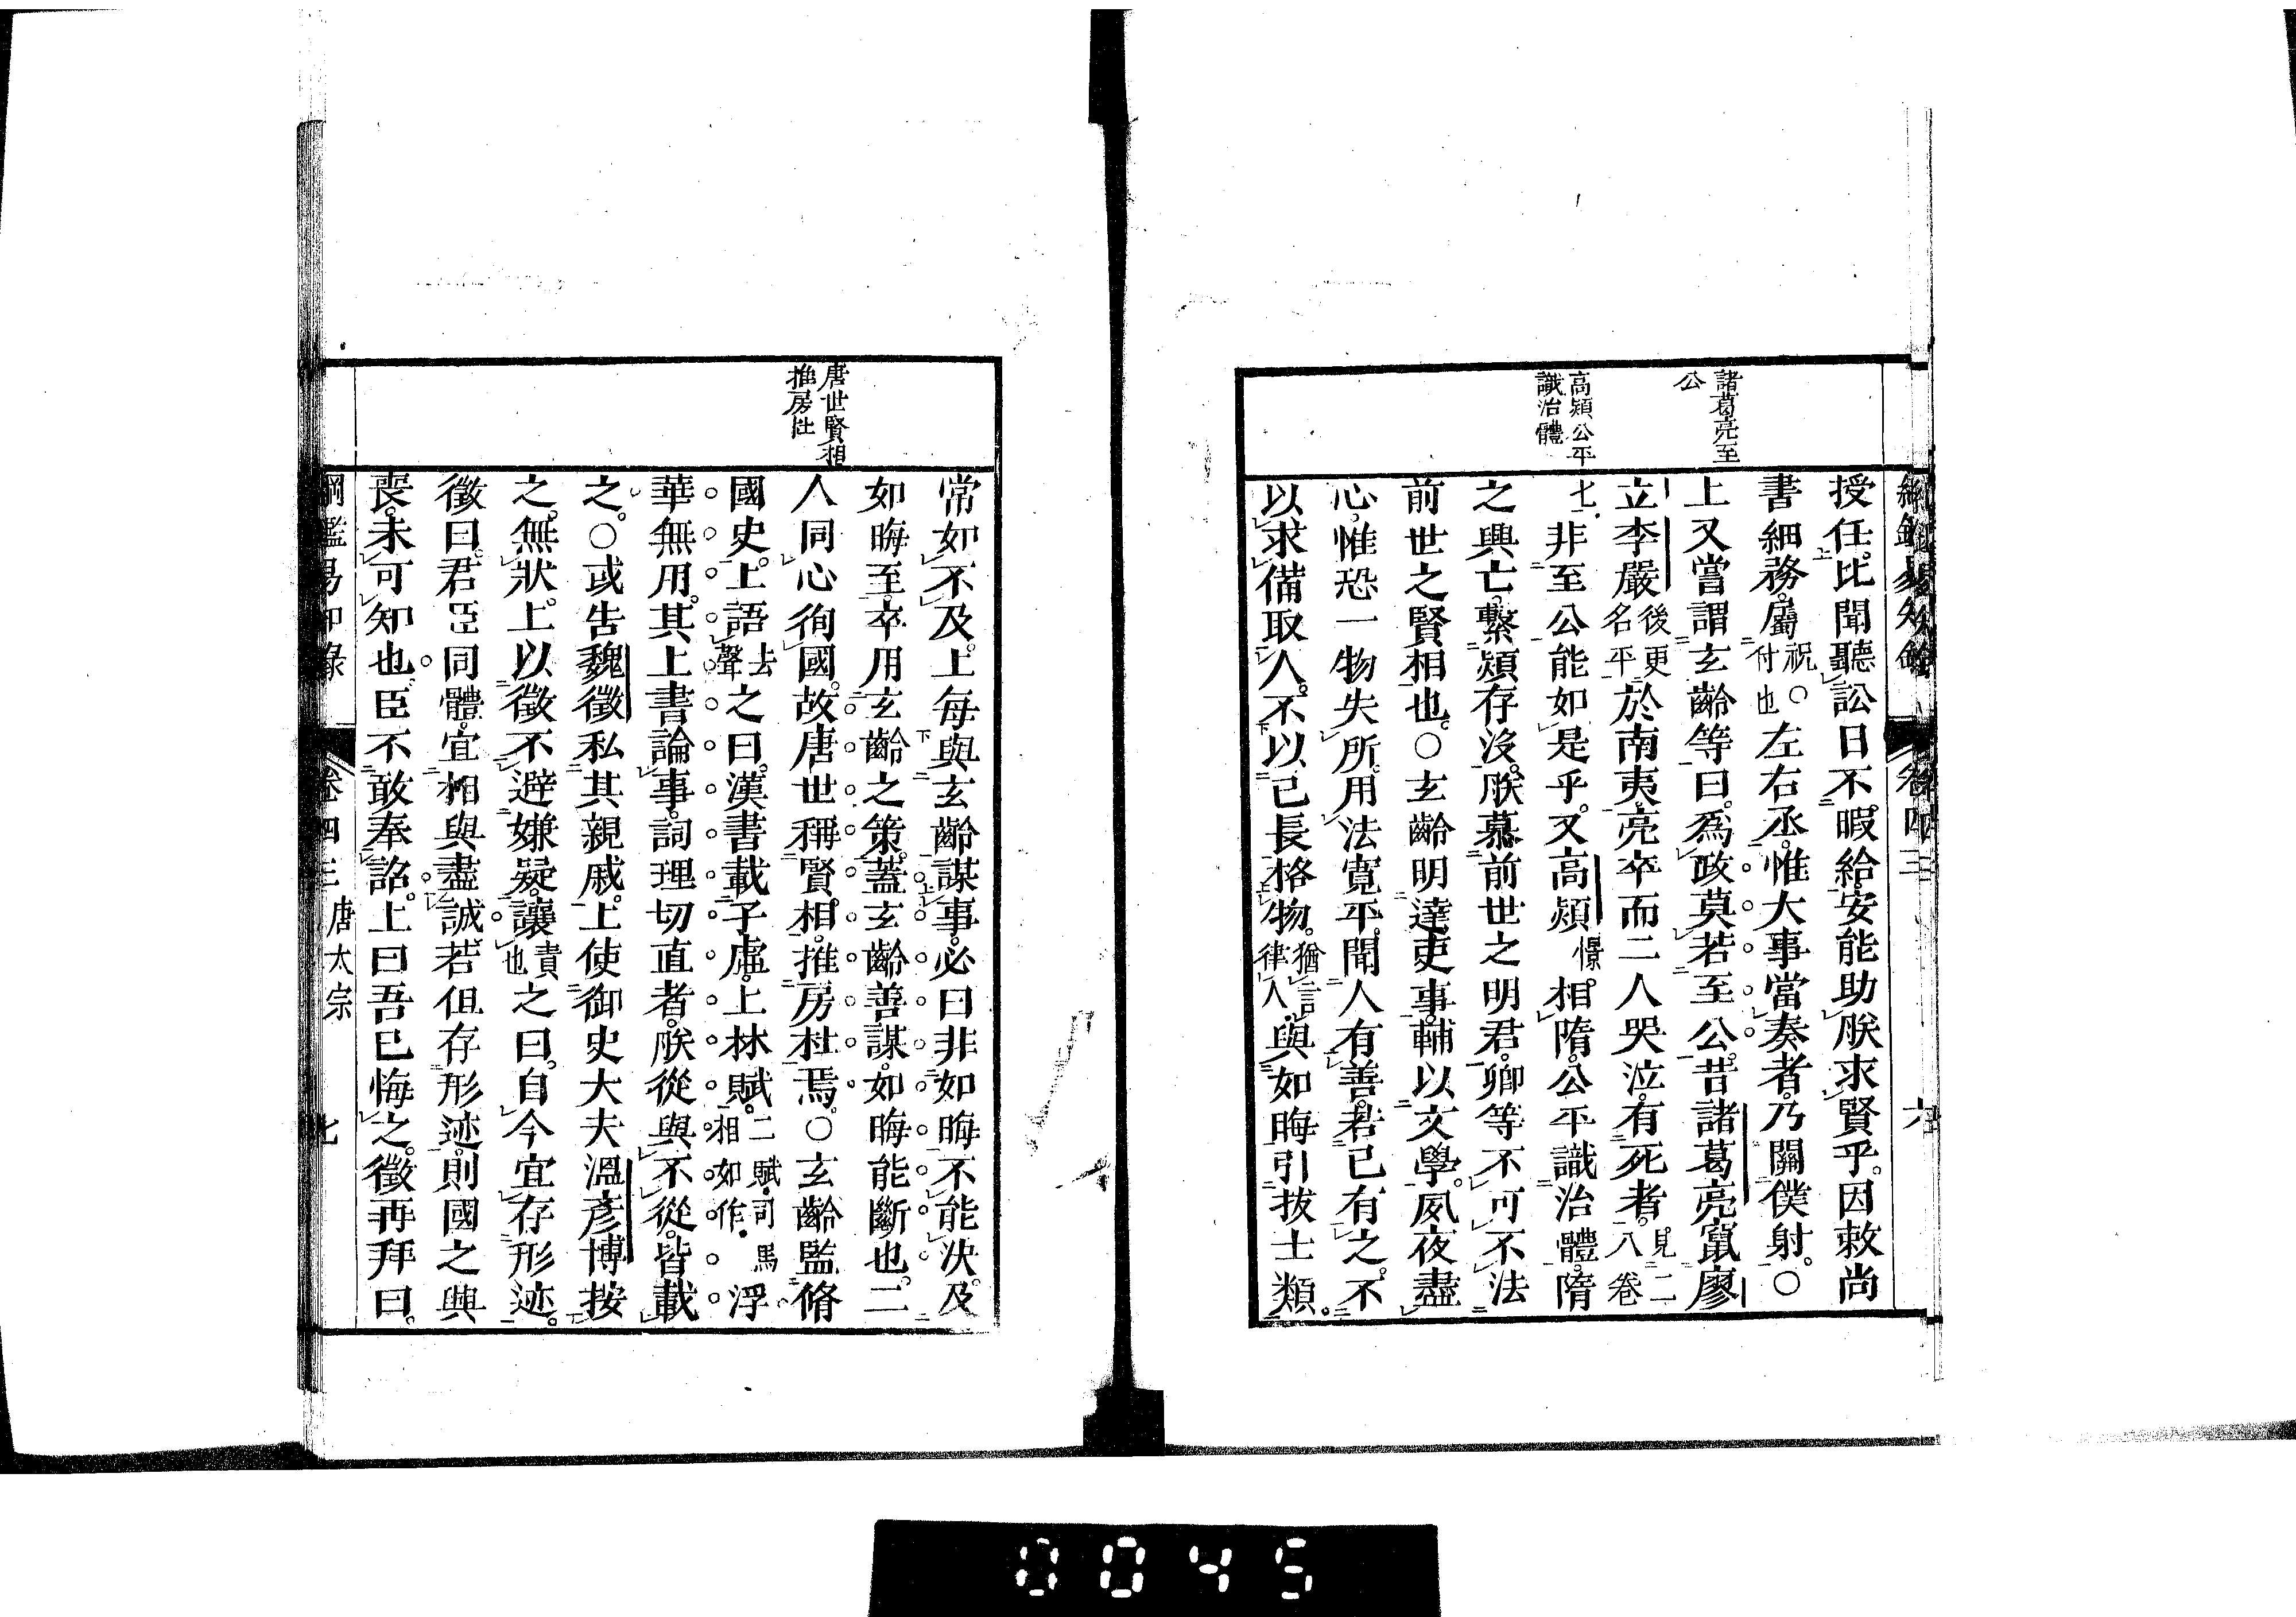 諸葛亮至
公
高熲公平
識治體
授任。比聞聽訟日不暇給。安能助朕求賢乎。因敕尚
書細務。屬祝。○付也左右丞。惟大事當奏者。乃關僕射。○
上又嘗謂玄齡等曰。爲政莫若至公。昔諸葛亮竄廖
立李嚴後更名平於南夷。亮卒而二人哭泣。有死者。見二八卷
七。非至公能如是乎。又高熲憬。相隋。公平識治體。隋
之興亡。繫熲存沒。朕慕前世之明君。卿等不可不法
前世之賢相也。○玄齡明達吏事。輔以文學。夙夜盡
心。惟恐一物失所。用法寬平。聞人有善。若己有之。不
以求備取人。不以己長格物。猶言律人。與如晦引拔士類。
卷四三
六
唐世賢相
推房杜
常如不及。上每與玄齡謀事。必曰非如晦不能決。及
如晦至。卒用玄齡之策。蓋玄齡善謀。如晦能斷也。二
人同心徇國。故唐世稱賢相。推房杜焉。○玄齡監脩
國史。上語去聲之曰。漢書載子虛。上林賦。二賦。司馬相如作。浮
華無用。其上書論事。詞理切直者。朕從與不從。皆載
之。○或告魏徵私其親戚。上使御史大夫溫彥博按
之。無狀。上以徵不避嫌疑。讓責也之曰。自今宜存形迹。
徵曰。君臣同體。宜相與盡誠。若但存形迹。則國之興
喪。未可知也。臣不敢奉詔。上曰吾已悔之。徵再拜曰。
綱鑑易知錄 卷四三 唐太宗 七
0045